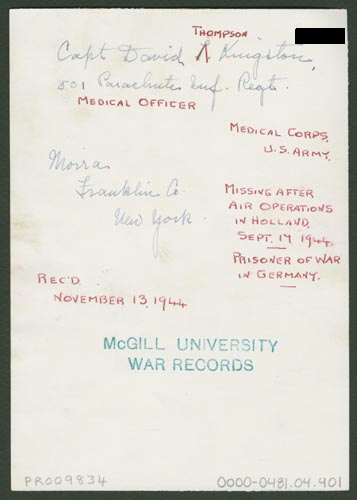 THOMPSON
Capt David Kingston,
501 Parachute Inf. Regt.
MEDICAL OFFICER
MEDICAL CORPS,
U.S. ARMY.
Moira
Franklin Co.
New York.
MISSING AFTER
AIR OPERATIONS
IN HOLLAND.
SEPT. 17 1944.
PRISONER OF WAR
IN GERMANY.
REC'D.
NOVEMBER 13, 1944
McGILL UNIVERSITY
WAR RECORDS
PR009834
0000-0481.04.401